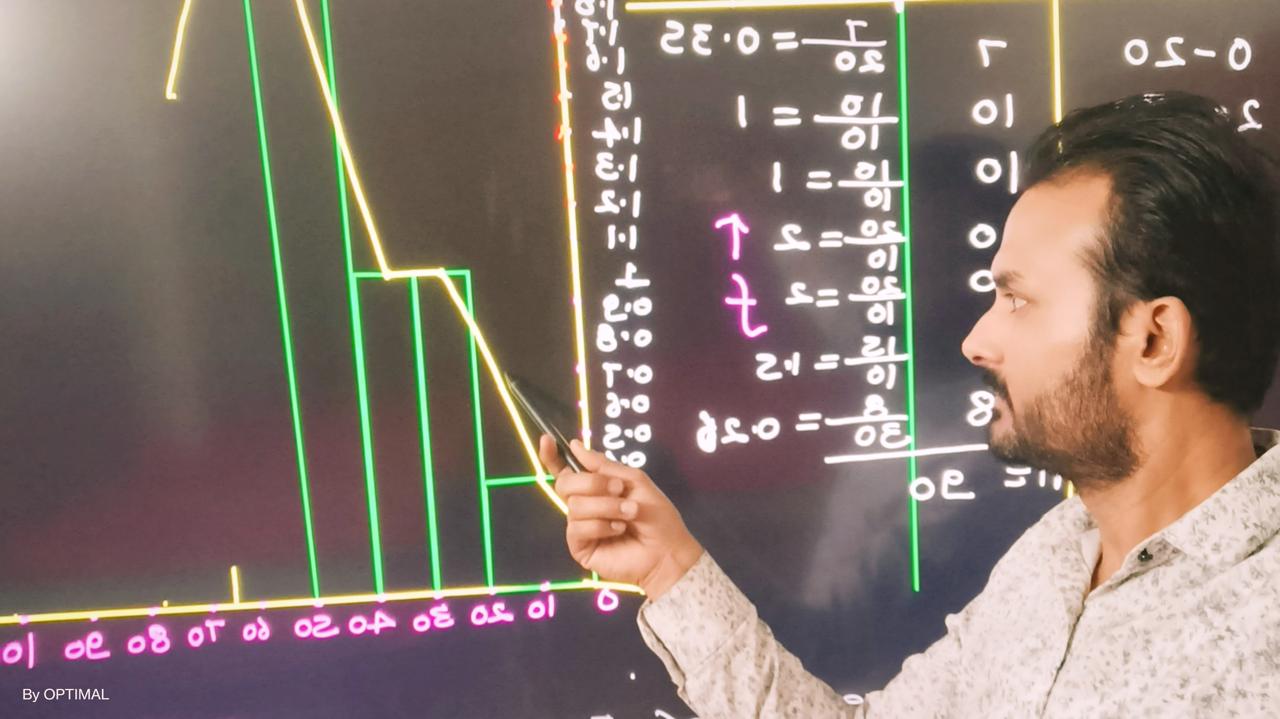 0-20 7 7/20 = 0.35
2
10 10/10 = 1
10 10/10 = 1
0 20/10 = 2
0 20/10 = 2
15/10 = 1.5
8 8/30 = 0.26
= 90
↑
f
1.8
1.7
1.6
1.5
1.4
1.3
1.2
1.1
1
0.9
0.8
0.7
0.6
0.5
0 10 20 30 40 50 60 70 80 90 10
By OPTIMAL